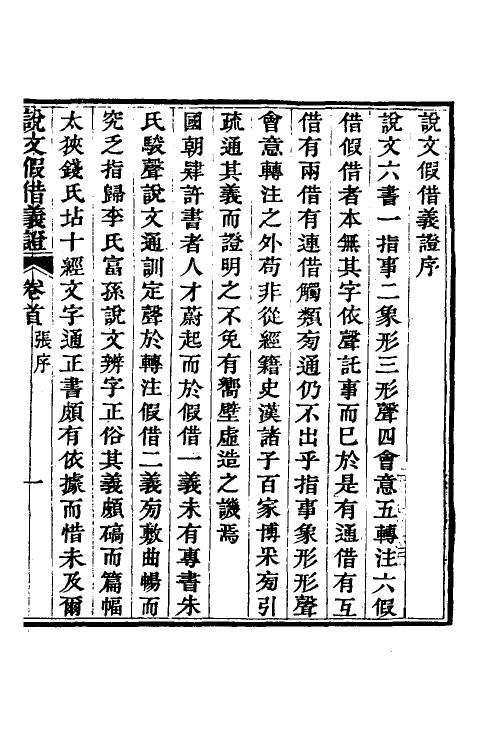 說文假借義證序
說文六書一指事二象形三形聲四會意五轉注六假
借假借者本無其字依聲託事而巳於是有通借有互
借有兩借有連借觸類㫄通仍不出乎指事象形形聲
會意轉注之外苟非從經籍史漢諸子百家博釆㫄引
疏通其義而證明之不免有嚮壁虛造之譏焉
國朝肄許書者人才蔚起而於假借一義未有專書朱
氏駿聲說文通訓定聲於轉注假借二義㫄敷曲暢而
究乏指歸李氏富孫說文辨字正俗其義頗碻而篇幅
太狹錢氏坫十經文字通正書頗有依據而惜未及爾
說文假借義證 卷首 張序 一